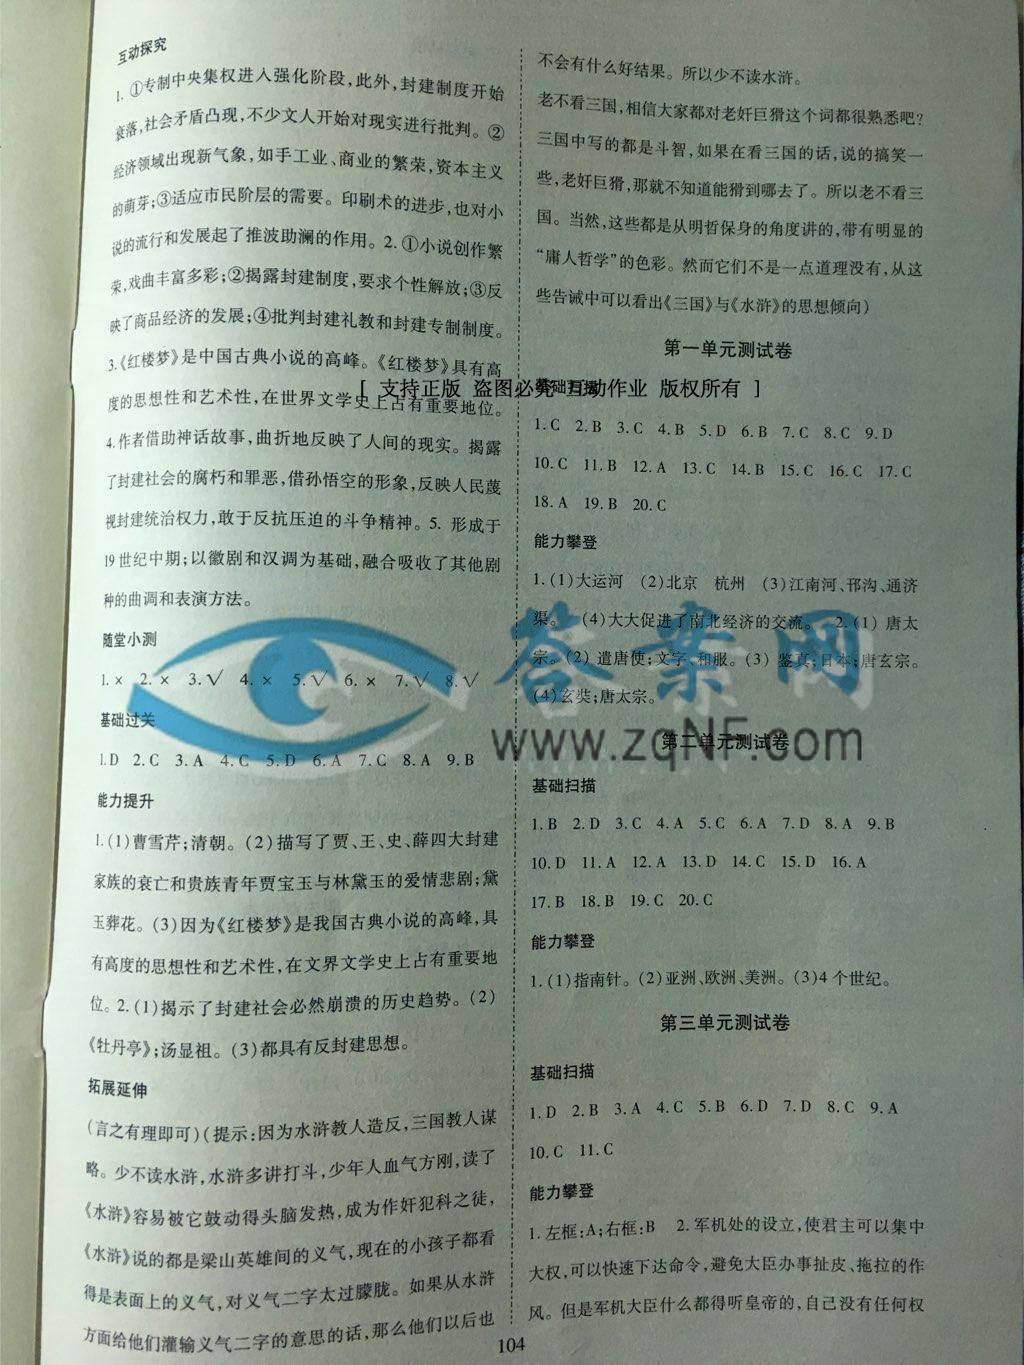 互动探究
1. ①专制中央集权进入强化阶段,此外,封建制度开始
衰落,社会矛盾凸现,不少文人开始对现实进行批判。②
经济领域出现新气象,如手工业、商业的繁荣,资本主义
的萌芽;③适应市民阶层的需要。印刷术的进步,也对小
说的流行和发展起了推波助澜的作用。2. ①小说创作繁
荣,戏曲丰富多彩;②揭露封建制度,要求个性解放;③反
映了商品经济的发展;④批判封建礼教和封建专制制度。
3.《红楼梦》是中国古典小说的高峰。《红楼梦》具有高
度的思想性和艺术性,在世界文学史上占有重要地位。
4.作者借助神话故事,曲折地反映了人间的现实。揭露
了封建社会的腐朽和罪恶,借孙悟空的形象,反映人民蔑
视封建统治权力,敢于反抗压迫的斗争精神。5. 形成于
19世纪中期;以徽剧和汉调为基础,融合吸收了其他剧
种的曲调和表演方法。
随堂小测
1.× 2.× 3.√ 4.× 5.√ 6.× 7.√ 8.√
基础过关
1.D 2.C 3.A 4.C 5.D 6.A 7.C 8.A 9.B
能力提升
1.(1)曹雪芹;清朝。(2)描写了贾、王、史、薛四大封建
家族的衰亡和贵族青年贾宝玉与林黛玉的爱情悲剧;黛
玉葬花。(3)因为《红楼梦》是我国古典小说的高峰,具
有高度的思想性和艺术性,在文界文学史上占有重要地
位。2.(1)揭示了封建社会必然崩溃的历史趋势。(2)
《牡丹亭》;汤显祖。(3)都具有反封建思想。
拓展延伸
(言之有理即可)(提示:因为水浒教人造反,三国教人谋
略。少不读水浒,水浒多讲打斗,少年人血气方刚,读了
《水浒》容易被它鼓动得头脑发热,成为作奸犯科之徒,
《水浒》说的都是梁山英雄间的义气,现在的小孩子都看
得是表面上的义气,对义气二字太过朦胧。如果从水浒
方面给他们灌输义气二字的意思的话,那么他们以后也
不会有什么好结果。所以少不读水浒。
老不看三国,相信大家都对老奸巨猾这个词都很熟悉吧?
三国中写的都是斗智,如果在看三国的话,说的搞笑一
些,老奸巨猾,那就不知道能猾到哪去了。所以老不看三
国。当然,这些都是从明哲保身的角度讲的,带有明显的
“庸人哲学”的色彩。然而它们不是一点道理没有,从这
些告诫中可以看出《三国》与《水浒》的思想倾向)
第一单元测试卷
基础扫描
[ 支持正版 盗图必究 互动作业 版权所有 ]
1.C 2.B 3.C 4.B 5.D 6.B 7.C 8.C 9.D
10.C 11.B 12.A 13.C 14.B 15.C 16.C 17.C
18.A 19.B 20.C
能力攀登
1.(1)大运河 (2)北京 杭州 (3)江南河、邗沟、通济
渠。 (4)大大促进了南北经济的交流。 2.(1) 唐太
宗。(2) 遣唐使;文字、和服。(3) 鉴真;日本;唐玄宗。
(4)玄奘;唐太宗。
答案网
www.zqNF.com
第二单元测试卷
基础扫描
1.B 2.D 3.C 4.A 5.C 6.A 7.D 8.A 9.B
10.D 11.A 12.A 13.D 14.C 15.D 16.A
17.B 18.B 19.C 20.C
能力攀登
1.(1)指南针。(2)亚洲、欧洲、美洲。(3)4个世纪。
第三单元测试卷
基础扫描
1.D 2.B 3.A 4.C 5.B 6.D 7.D 8.C 9.A
10.C 11.C
能力攀登
1.左框:A;右框:B 2.军机处的设立,使君主可以集中
大权,可以快速下达命令,避免大臣办事扯皮、拖拉的作
风。但是军机大臣什么都得听皇帝的,自己没有任何权
104